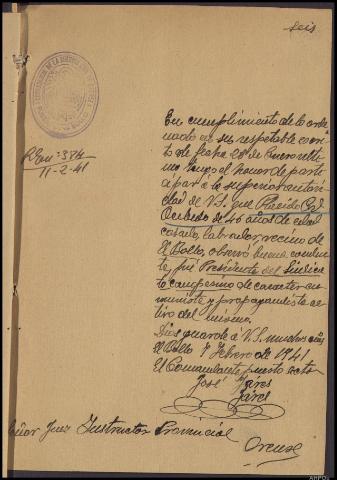 seis
Rn: 384
11-2-41
En cumplimiento de lo orde
nado en su respetable escri
to de fecha 28 de Enero ulti
mo tengo el honor de parti
cipar á la superior autori
dad de V.S. que Placido
de 46 años de edad
casado, labrador, vecino de
El Bollo, observó buena conduc
ta, fué Presidente del Sindica
to campesino de caracter co
munista y propagandista ac
tivo del mismo.
Dios guarde á V.S. muchos años
El Bollo 7 Febrero de 1941
El Comandante puesto actal
José Jares
Jares
Señor Juez Instructor Provincial
Orense